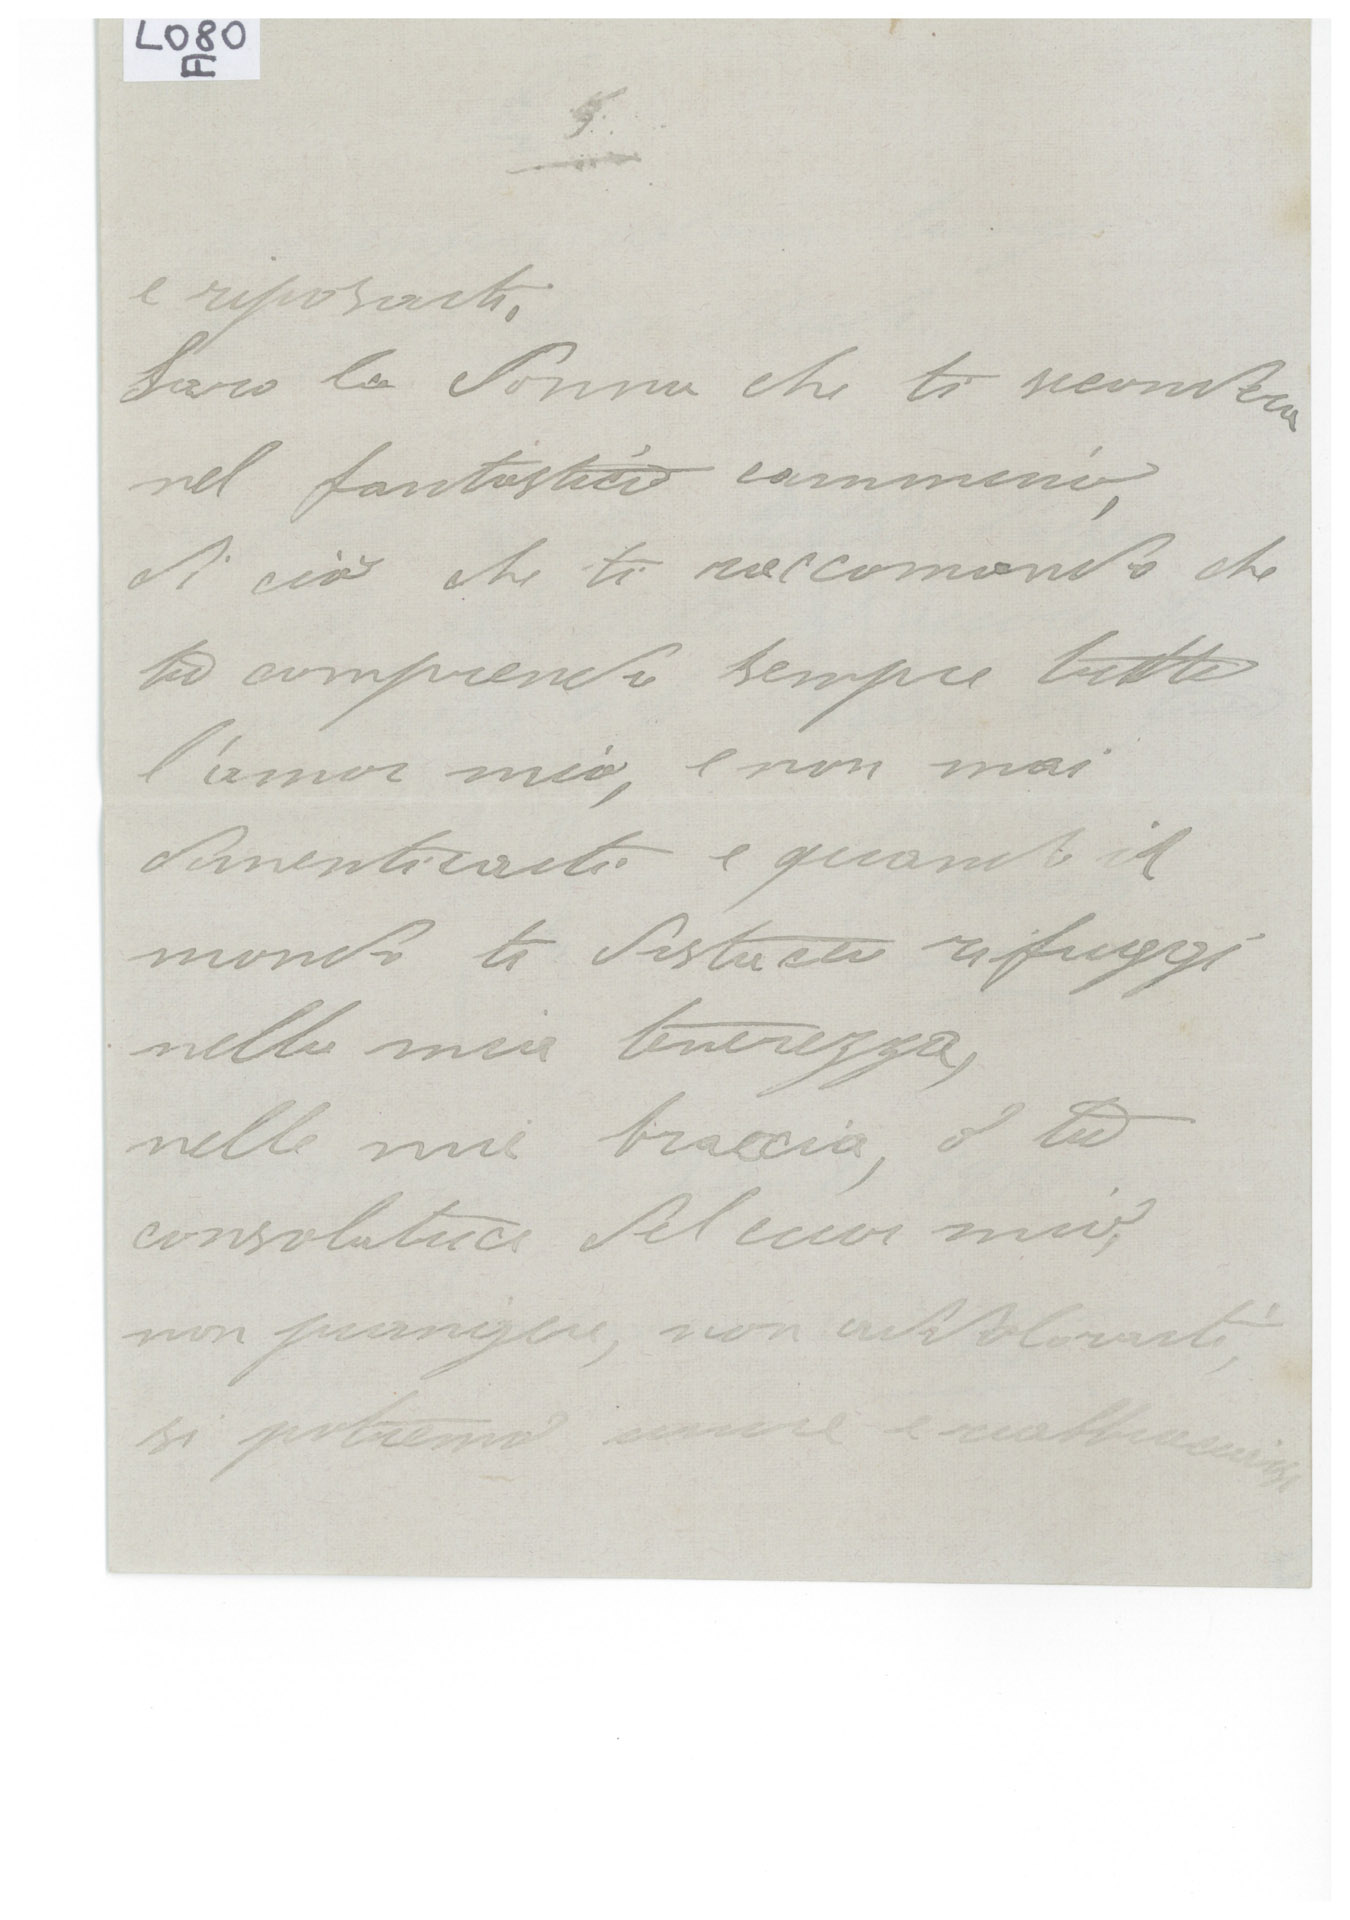 L080
F
5.
e riposarti.
Sarò la Donna che ti seconderà
nel fantastico cammino,
di ciò che ti raccomando che
tu comprenda sempre tutto
l'amor mio, e non mai
dimenticarti e quando il
mondo ti distacca rifuggi
nella mia tenerezza,
nelle mie braccia, o tu
consolatrice del cuor mio,
non piangere, non addolorarti,
si potremo unire e riabbracciarsi